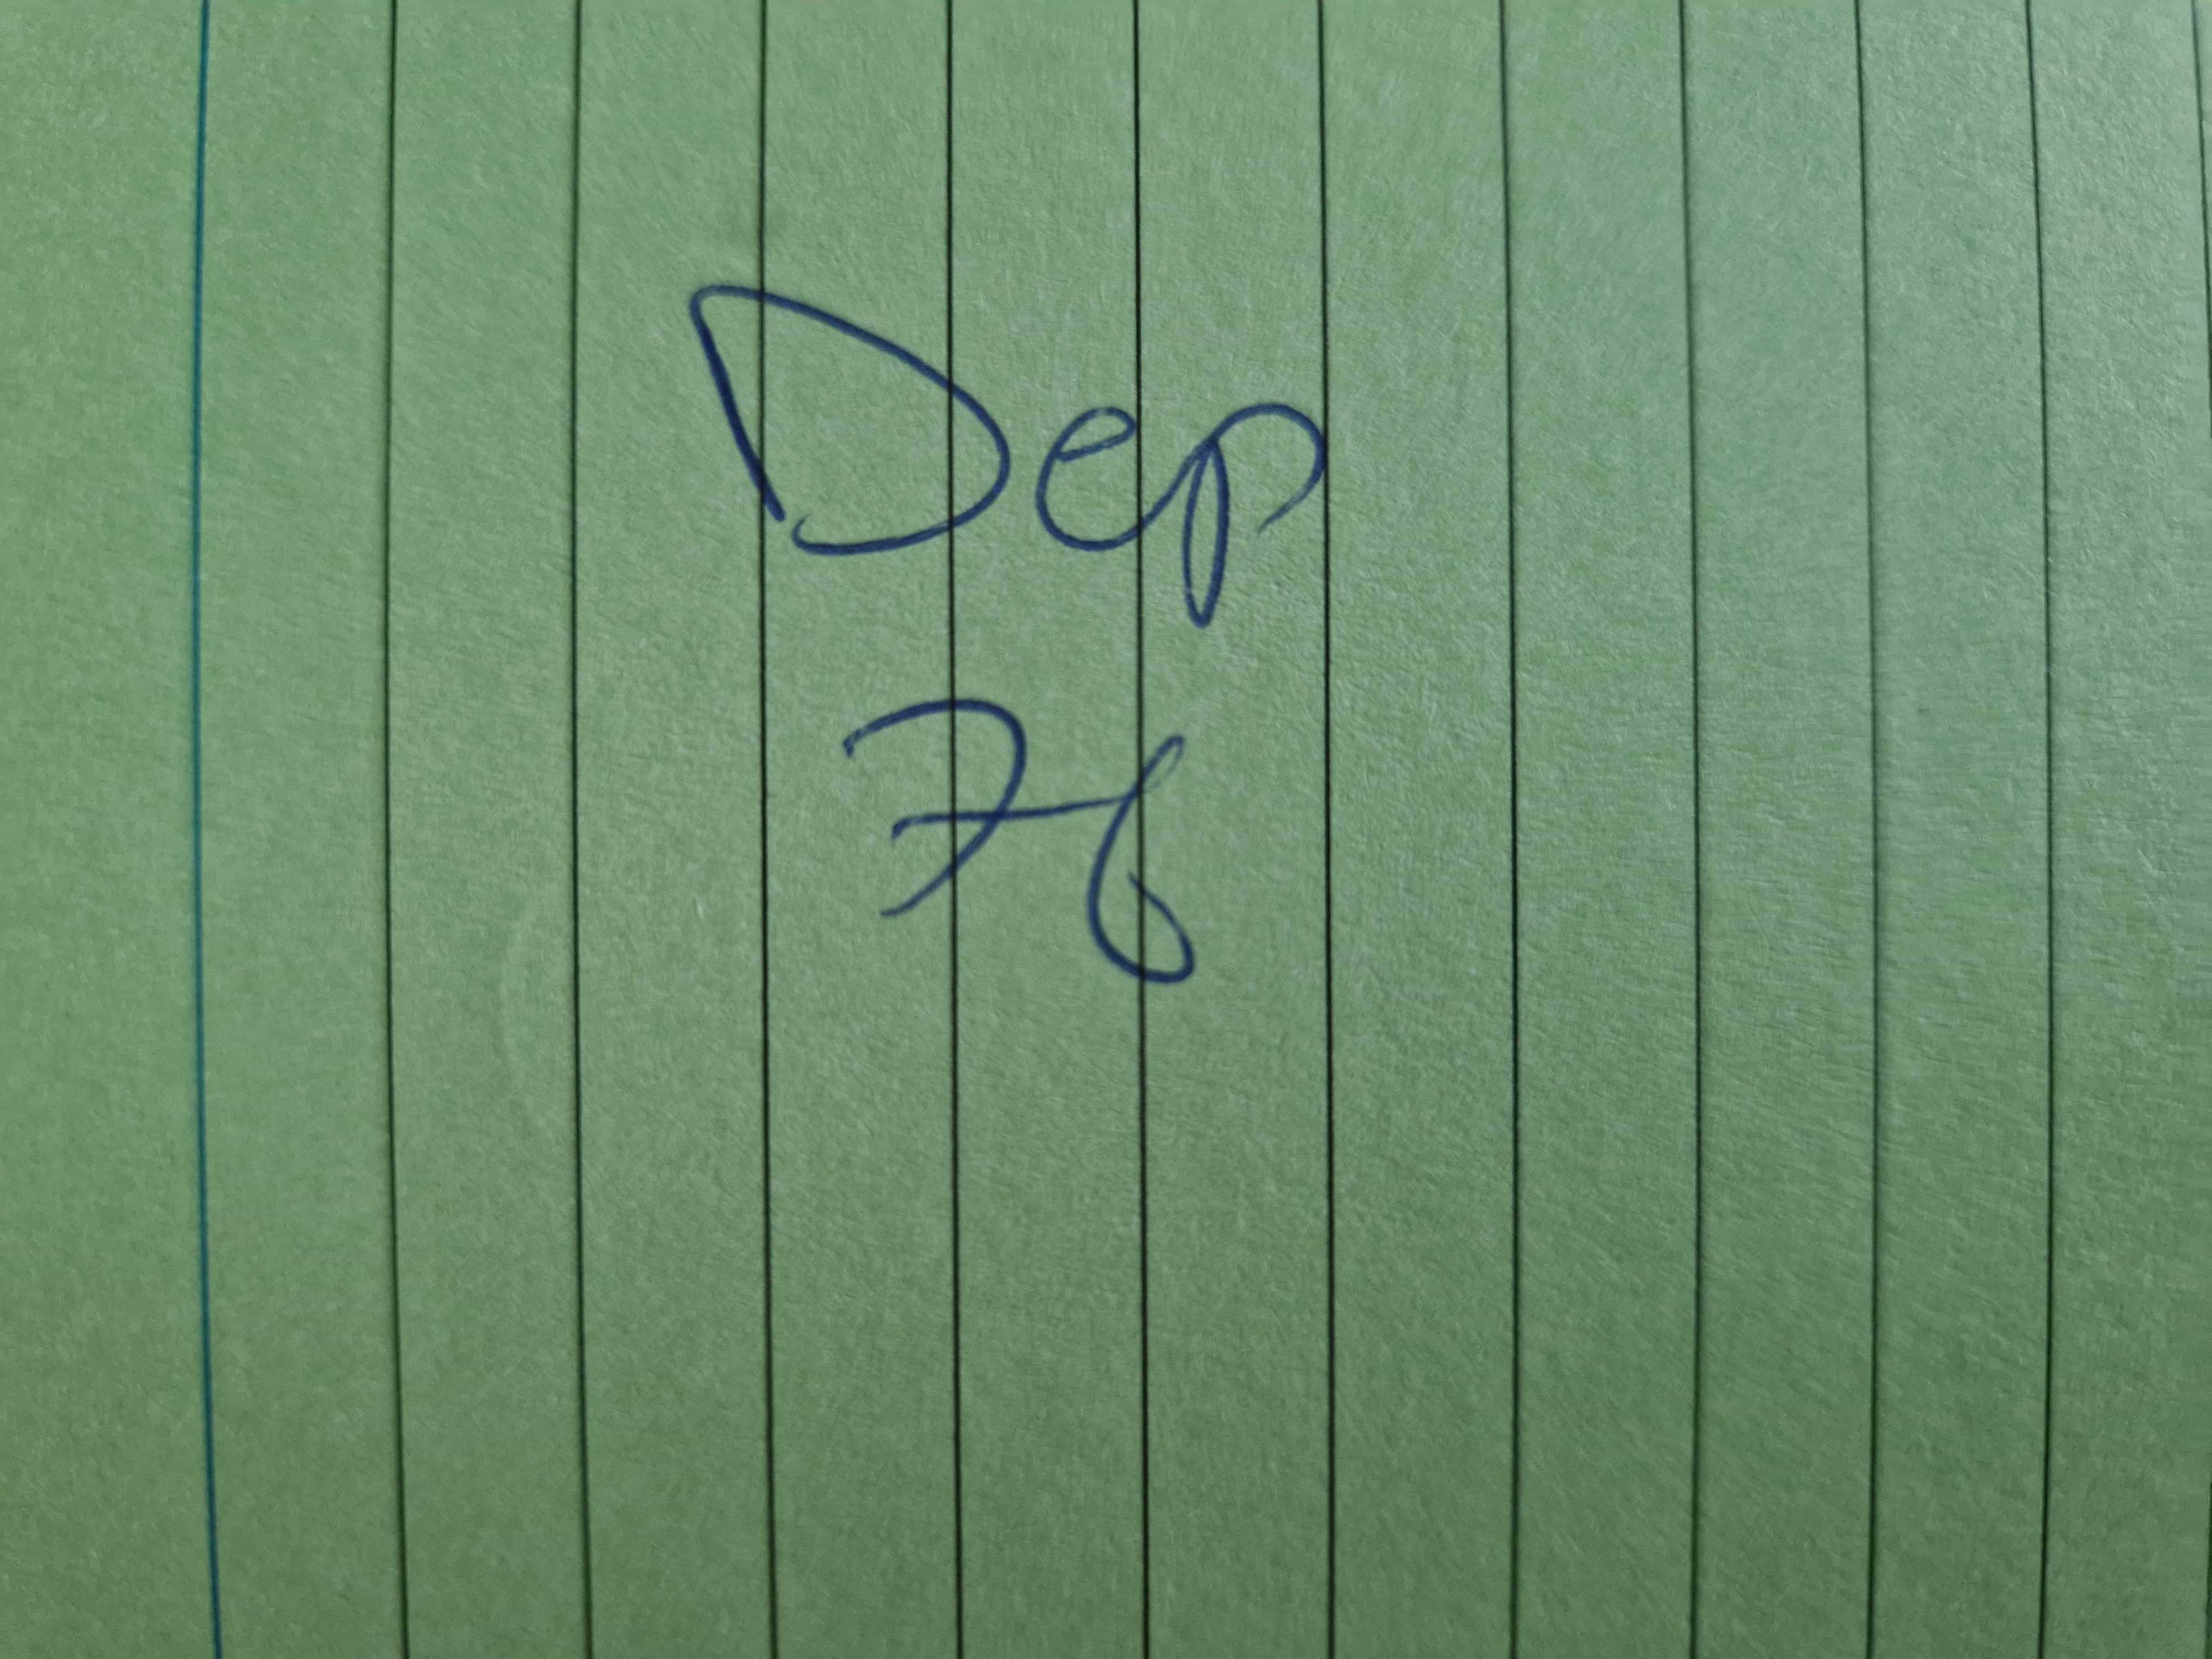 Dep
76